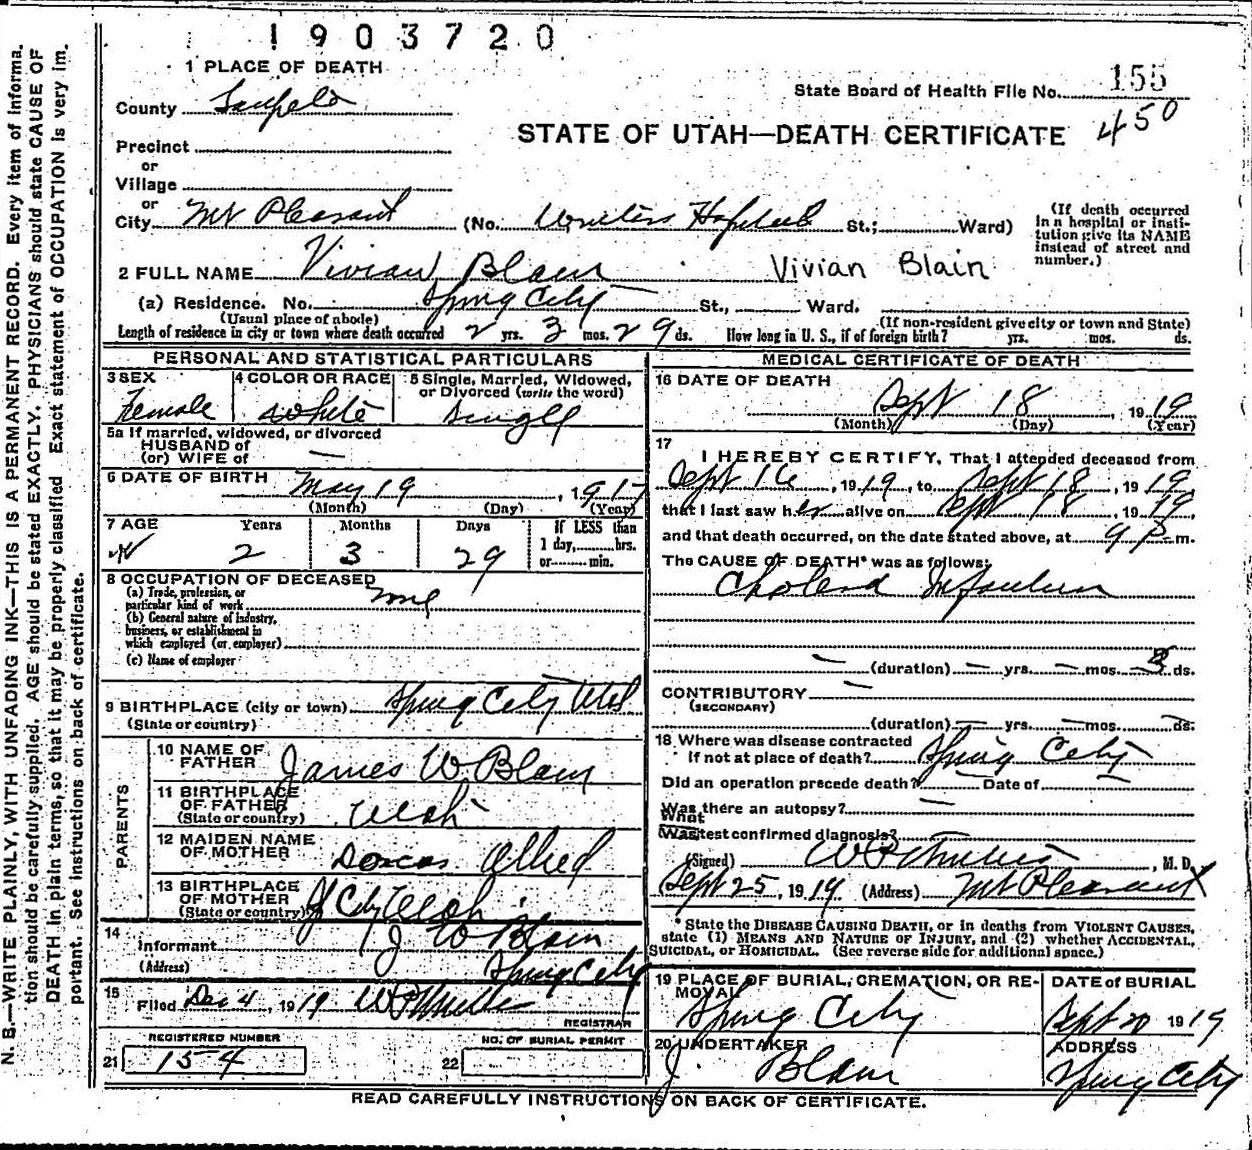 1903720
1 PLACE OF DEATH
State Board of Health File No. 155
County Sanpete
450
STATE OF UTAH—DEATH CERTIFICATE
Precinct
or
Village
or
City Mt Pleasant (No. Hospital St.; Ward)
(If death occurred in a hospital or institution give its NAME instead of street and number.)
2 FULL NAME Vivian Blain Vivian Blain
(a) Residence. No. Spring City St., Ward.
(Usual place of abode) (If non-resident give city or town and State)
Length of residence in city or town where death occurred 2 yrs. 3 mos. 29 ds. How long in U. S., if of foreign birth? yrs. mos. ds.
PERSONAL AND STATISTICAL PARTICULARS
3 SEX Female
4 COLOR OR RACE white
5 Single, Married, Widowed, or Divorced (write the word) Single
5a If married, widowed, or divorced
HUSBAND of
(or) WIFE of —
6 DATE OF BIRTH May 19, 1917
(Month) (Day) (Year)
7 AGE Years Months Days If LESS than
2 3 29 1 day, hrs.
or min.
8 OCCUPATION OF DECEASED
(a) Trade, profession, or
particular kind of work none
(b) General nature of industry,
business, or establishment in
which employed (or employer)
(c) Name of employer
9 BIRTHPLACE (city or town) Spring City Utah
(State or country)
PARENTS
10 NAME OF FATHER James W. Blain
11 BIRTHPLACE OF FATHER (State or country) Utah
12 MAIDEN NAME OF MOTHER Dorcas Allred
13 BIRTHPLACE OF MOTHER (State or country) S City Utah
14 Informant J W Blain
(Address) Spring City
15 Filed Dec 4, 1919
REGISTRAR
REGISTERED NUMBER
21 154
NO. OF BURIAL PERMIT
22
MEDICAL CERTIFICATE OF DEATH
16 DATE OF DEATH
Sept 18, 1919
(Month) (Day) (Year)
17 I HEREBY CERTIFY, That I attended deceased from
Sept 16, 1919, to Sept 18, 1919
that I last saw her alive on Sept 18, 1919,
and that death occurred, on the date stated above, at 9 P. m.
The CAUSE OF DEATH* was as follows:
Cholera Infantum
— (duration) — yrs. — mos. 3 ds.
CONTRIBUTORY —
(SECONDARY)
(duration) — yrs. — mos. — ds.
18 Where was disease contracted
If not at place of death? Spring City
Did an operation precede death? — Date of —
Was there an autopsy? —
What
Was test confirmed diagnosis? —
(Signed) , M. D.
Sept 25, 1919 (Address) Mt Pleasant
* State the DISEASE CAUSING DEATH, or in deaths from VIOLENT CAUSES,
state (1) MEANS AND NATURE OF INJURY, and (2) whether ACCIDENTAL,
SUICIDAL, or HOMICIDAL. (See reverse side for additional space.)
19 PLACE OF BURIAL, CREMATION, OR REMOVAL
Spring City
DATE OF BURIAL
Sept 20 1919
20 UNDERTAKER
J. Blain
ADDRESS
Spring City
READ CAREFULLY INSTRUCTIONS ON BACK OF CERTIFICATE.
N. B.—WRITE PLAINLY, WITH UNFADING INK—THIS IS A PERMANENT RECORD. Every item of information should be carefully supplied. AGE should be stated EXACTLY. PHYSICIANS should state CAUSE OF DEATH in plain terms, so that it may be properly classified Exact statement of OCCUPATION is very important. See instructions on back of certificate.